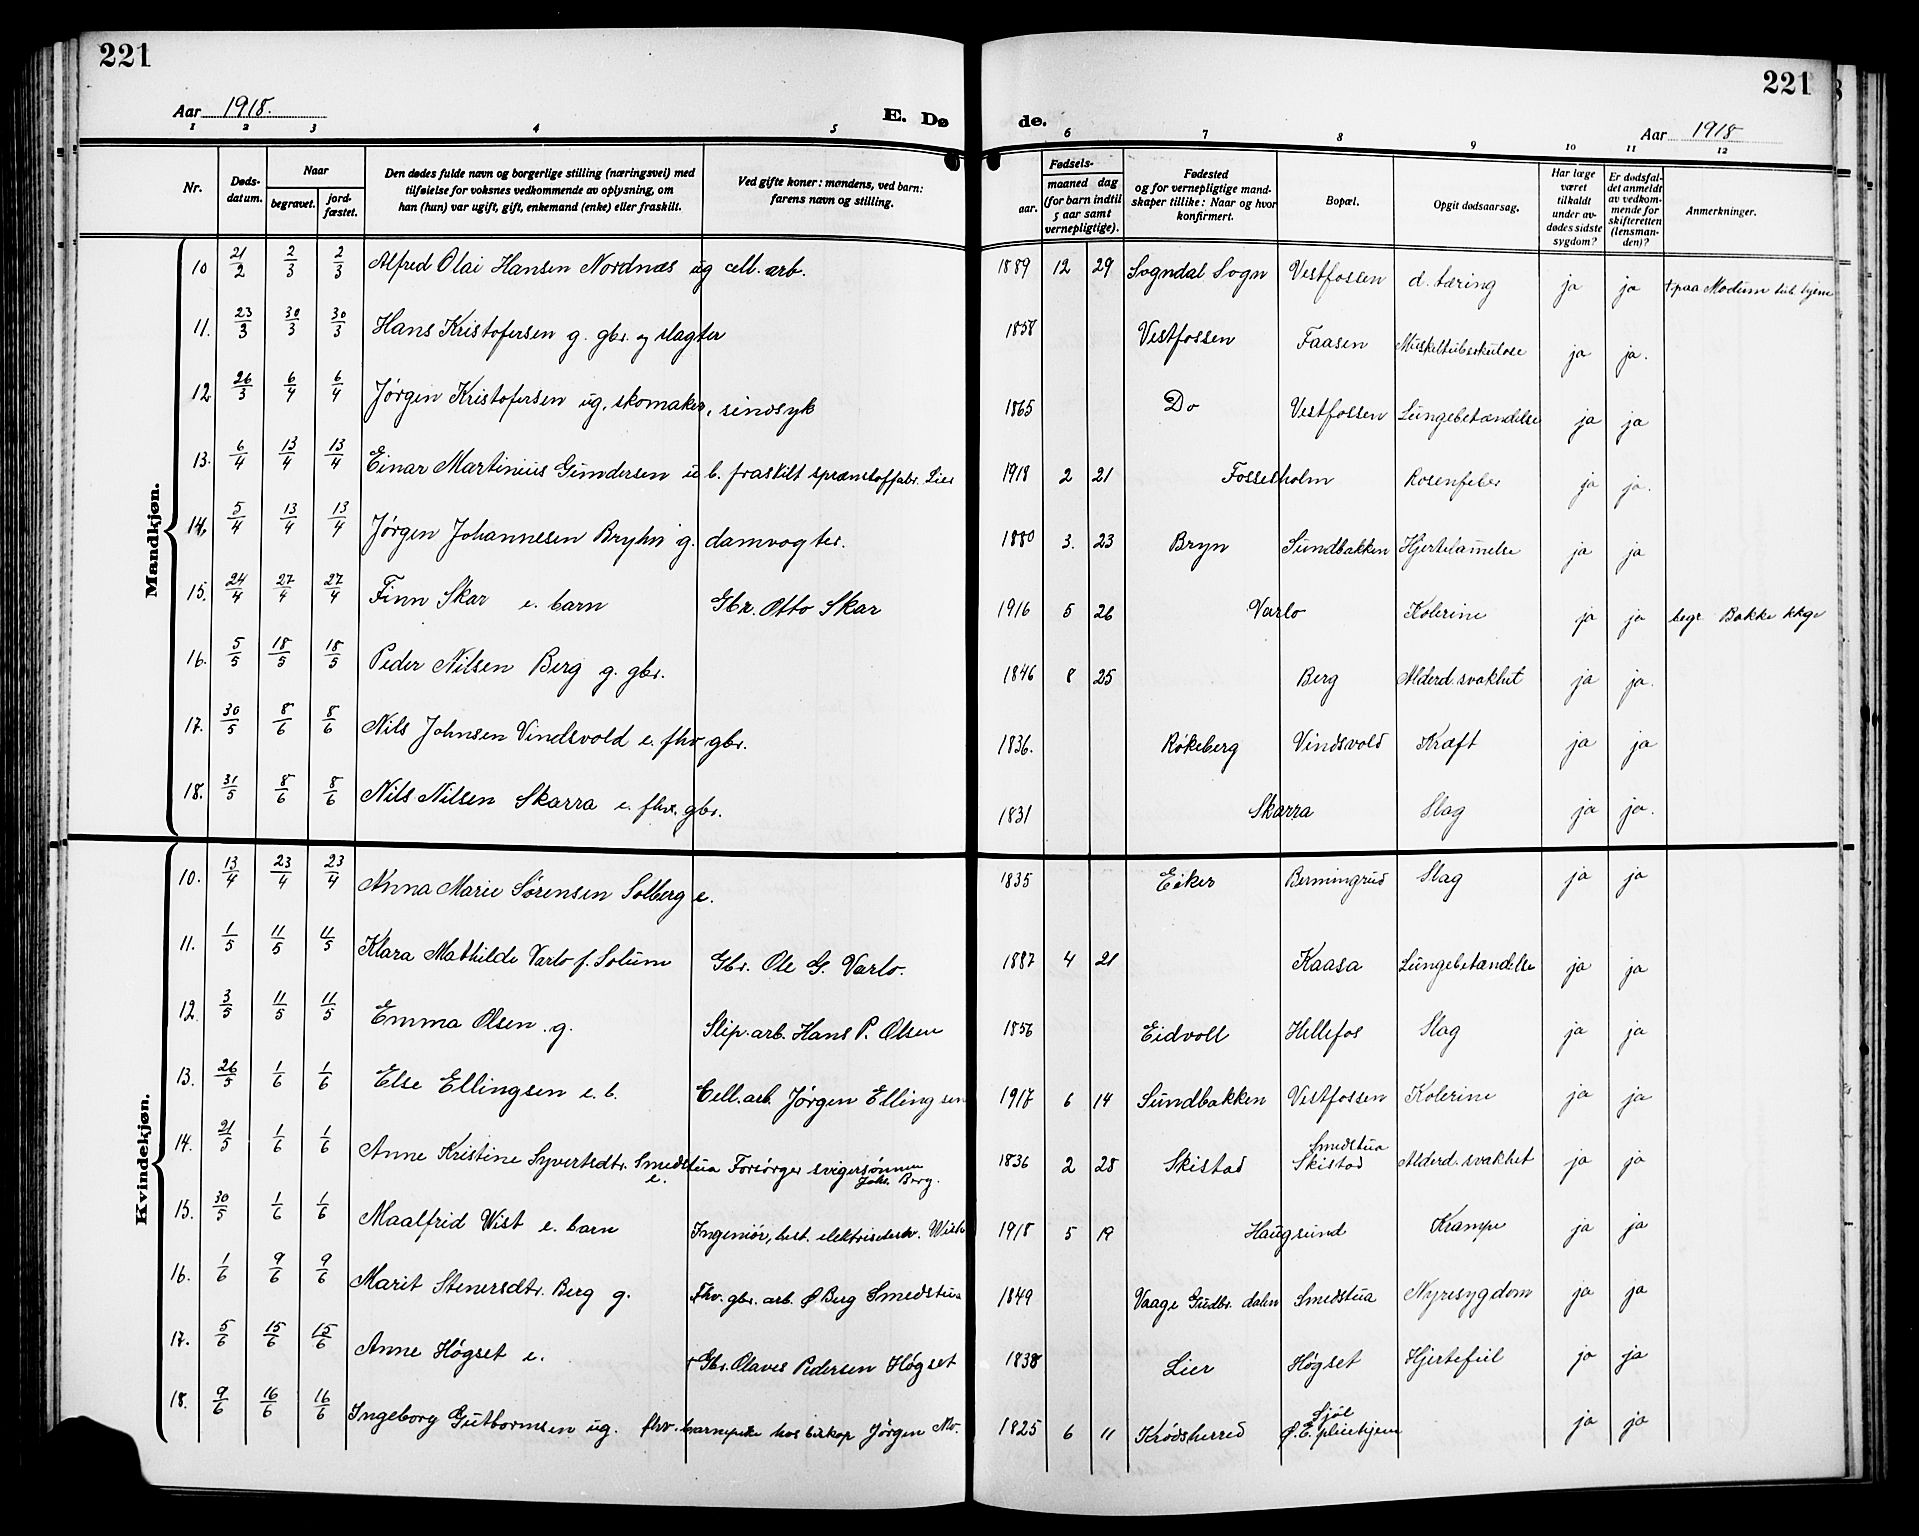 221
221
Aar 1918.
E. Dø
de.
Aar 1918
1 2 3 4 5 6 7 8 9 10 11 12
Nr.
Døds-
datum.
Naar
begravet.
jord-
fæstet.
Den dødes fulde navn og borgerlige stilling (næringsvei) med
tilføielse for voksnes vedkommende av oplysning, om
han (hun) var ugift, gift, enkemand (enke) eller fraskilt.
Ved gifte koner: mandens, ved barn:
farens navn og stilling.
Fødsels-
aar.
maaned dag
(for barn indtil
5 aar samt
vernepligtige).
Fødested
og for vernepligtige mand-
skaper tillike: Naar og hvor
konfirmert.
Bopæl.
Opgit dødsaarsag.
Har læge
været
tilkaldt
under av-
dødes sidste
sygdom?
Er dødsfal-
det anmeldt
av vedkom-
mende for
skifteretten
(lensman-
den)?
Anmerkninger.
Mandkjøn.
10 21/2 2/3 2/3 Alfred Olai Hansen Nordnæs ug cell. arb. 1889 12 29 Sogndal Sogn Vestfossen d. tæring ja ja + paa Modum tub hjem
11. 23/3 30/3 30/3 Hans Kristofersen g. gbr. og slagter 1858 Vestfossen Faasen Muskeltuberkulose ja ja.
12. 26/3 6/4 6/4 Jørgen Kristofersen ug. skomaker, sindsyk 1865 Do Vestfossen Lungebetændelse ja ja
13. 6/4 13/4 13/4 Einar Martinius Gundersen u b. fraskilt sprænstoffabr. Lier 1918 2 21 Fossesholm Rosenfeber ja ja.
14. 5/4 13/4 13/4 Jørgen Johannesen Bryhn g. damvogter. 1880 3. 23 Bryn Sundbakken Hjertelamelse ja ja
15. 24/4 27/4 27/4 Finn Skar e. barn Gbr. Otto Skar 1916 5 26 Varlo Kolerine ja ja begr Bakke kkge
16. 5/5 18/5 18/5 Peder Nilsen Berg g. gbr. 1846 8 25 Berg Alderd. svakhet ja ja.
17. 30/5 8/6 8/6 Nils Johnsen Vindsvold e. fhv. gbr. 1836. Røkeberg Vindsvold Kræft ja ja
18. 31/5 8/6 8/6 Nils Nilsen Skarra e. fhv. gbr. 1831 Skarra Slag ja ja.
Kvindekjøn.
10. 13/4 23/4 23/4 Anna Marie Sørensen Solberg e. 1835 Eiker Bermingrud Slag ja ja
11. 1/5 11/5 11/5 Klara Mathilde Varlo f. Solum Gbr. Ole G. Varlo. 1887 4 21 Kaasa Lungebetændelse ja ja
12 3/5 11/5 11/5 Emma Olsen g. Slip. arb. Hans P. Olsen 1856 Eidvoll Hellefos Slag ja ja
13. 26/5 1/6 1/6 Else Ellingsen e. b. Cell. arb. Jørgen Ellingsen 1917 6 14 Sundbakken Vestfossen Kolerine ja ja
14. 21/5 1/6 1/6 Anne Kristine Syvertsdtr. Smedstua e. Forsørger svigersønnen Johs. Berg. 1836 2 28 Skistad Smedstua Skistad Alderd. svakhet ja ja
15. 30/5 1/6 1/6 Maalfrid Wist e. barn Ingeniør, best. 1918 5 19 Haugsund Krampe ja ja
16. 1/6 9/6 9/6 Marit Stenersdtr. Berg g. Fhv. gbr. arb. Ø Berg Smedstua 1849 Vaage Gudbr. dalen Smedstua Nyresygdom ja ja
17. 5/6 15/6 15/6 Anne Høgset e. + Gbr. Olaves Pedersen Høgset 1838 Lier Høgset Hjertefeil ja ja
18. 9/6 16/6 16/6 Ingeborg Gutbormsen ug. fhv. barnepike hos biskop Jørgen Mo. 1825 6 11 Krødsherred Sjøl Ø. E. pleiehjem ja ja